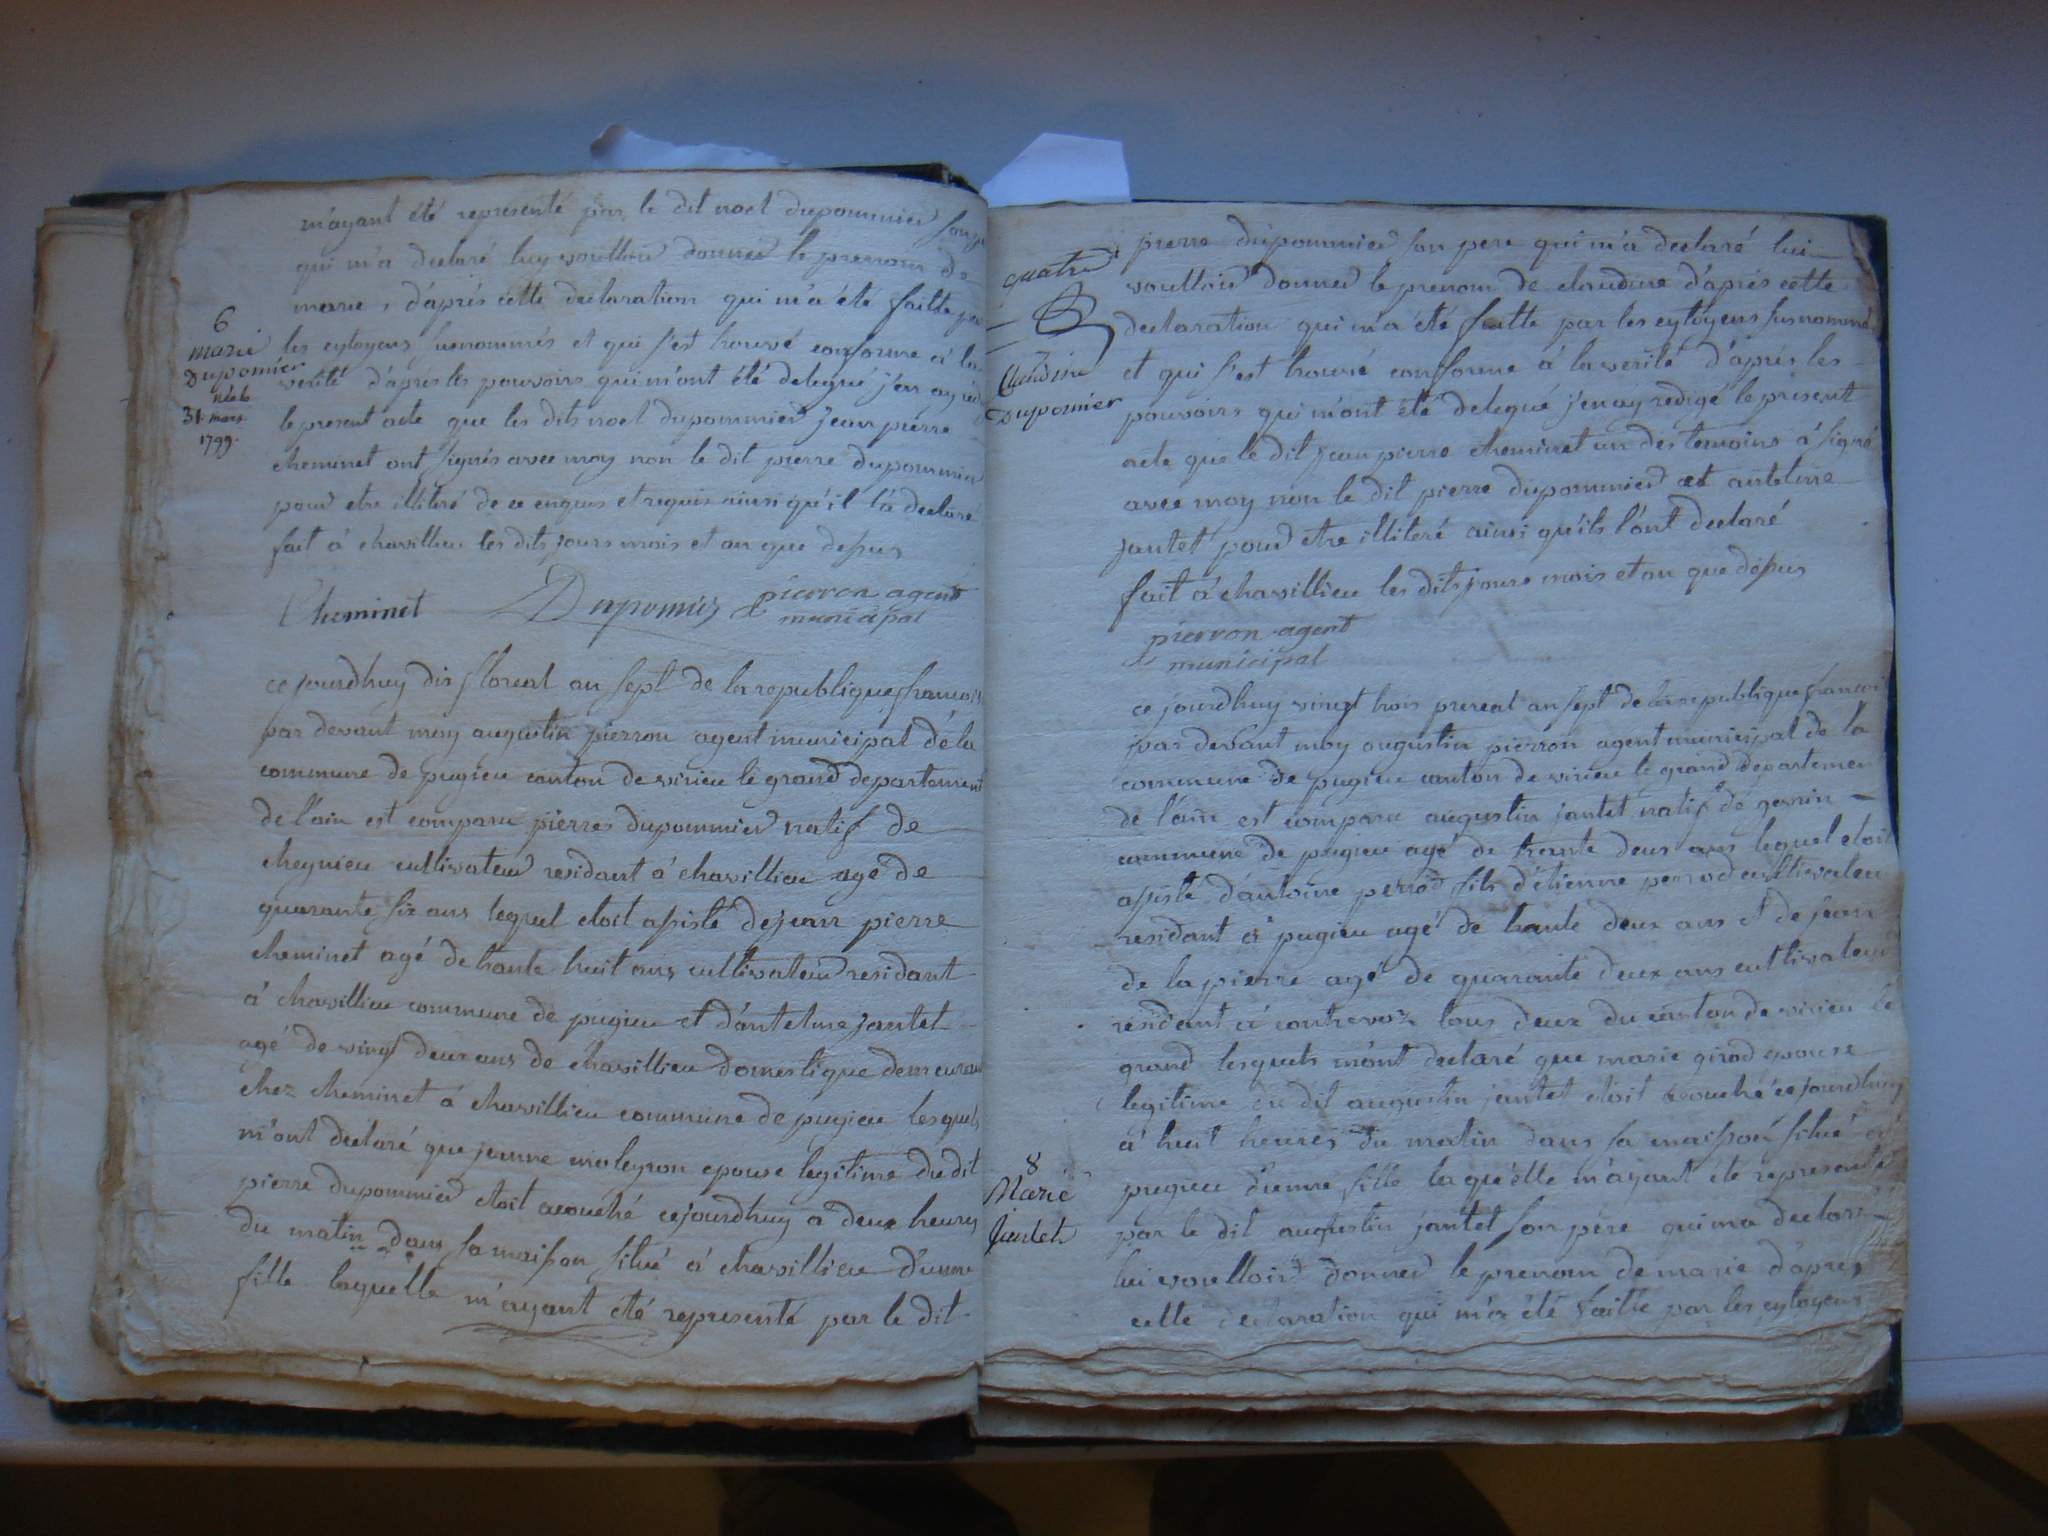 m'ayant été representé par le dit noel dupommier son
qui m'a declaré luy voulloir donner le prenom de
marie, d'après cette declaration qui m'a été faitte par
6
marie
Dupomier
née le
31 mars
1799.
les cytoyens susnommés et qui s'est trouvé conforme à la
verité d'après les pouvoirs qui m'ont été delegué j'en ay
le present acte que les dits noel dupommier jean pierre
cheminet ont signés avec moy non le dit pierre dupommier
pour etre illiteré de ce enquis et requis ainsi qu'il l'a declaré
fait à chavillieu les dits jours mois et an que dessus
Cheminet Dupomier pierron agent
municipal
ce jourdhuy dix floreal an sept de la republique francois
par devant moy augustin pierron agent municipal de la
commune de pugieu canton de virieu le grand departement
de l'ain est comparu pierre dupommier natif de
chegnieu cultivateur residant à chavillieu agé de
quarante six ans lequel etoit assisté de jean pierre
cheminet agé de trante huit ans cultivateur residant
à chavillieu commune de pugieu et d'antelme jantet
agé de vingt deux ans de chavillieu domestique demeurant
chez cheminet à chavillieu commune de pugieu lesquels
m'ont declaré que jeanne moleyron epouse legitime du dit
pierre dupommier etoit acouché cejourdhuy a deux heures
du matin dans sa maison situé à chavillieu d'unne
fille laquelle m'ayant été representé par le dit
quatre
Claudine
Dupomier
pierre dupommier son pere qui m'a declaré lui
voulloir donner le prenom de claudine d'après cette
declaration qui m'a été faitte par les cytoyens susnommé
et qui s'est trouvé conforme à la verité d'après les
pouvoirs qui m'ont été delegué j'en ay redigé le present
acte que le dit jean pierre cheminet un des temoins à signé
avec moy non le dit pierre dupommier et antelme
jantet pour etre illiteré ainsi qu'ils l'ont declaré
fait à chavillieu les dits jours mois et an que dessus
pierron agent
municipal
ce jourdhuy vingt trois prereal an sept de la republique francoi
par devant moy augustin pierron agent municipal de la
commune de pugieu canton de virieu le grand departemen
de l'ain est comparu augustin jantet natif de
commune de pugieu agé de trante deux ans lequel etoit
assisté d'antoine perrod fils d'étienne perrod cultivateu
residant à pugieu agé de trante deux ans et de jean
de la pierre agé de quarante deux ans cultivateur
residant à contrevoz tous deux du canton de virieu le
grand lesquels m'ont declaré que marie girod epouse
legitime du dit augustin jantet etoit acouché ce jourdhuy
à huit heures du matin dans sa maison situé à
pugieu d'unne fille laquelle m'ayant été representé
8
Marie
Jantet
par le dit augustin jantet son père qui ma declaré
lui voulloir donner le prenom de marie d'après
cette declaration qui m'a été faitte par les cytoyens